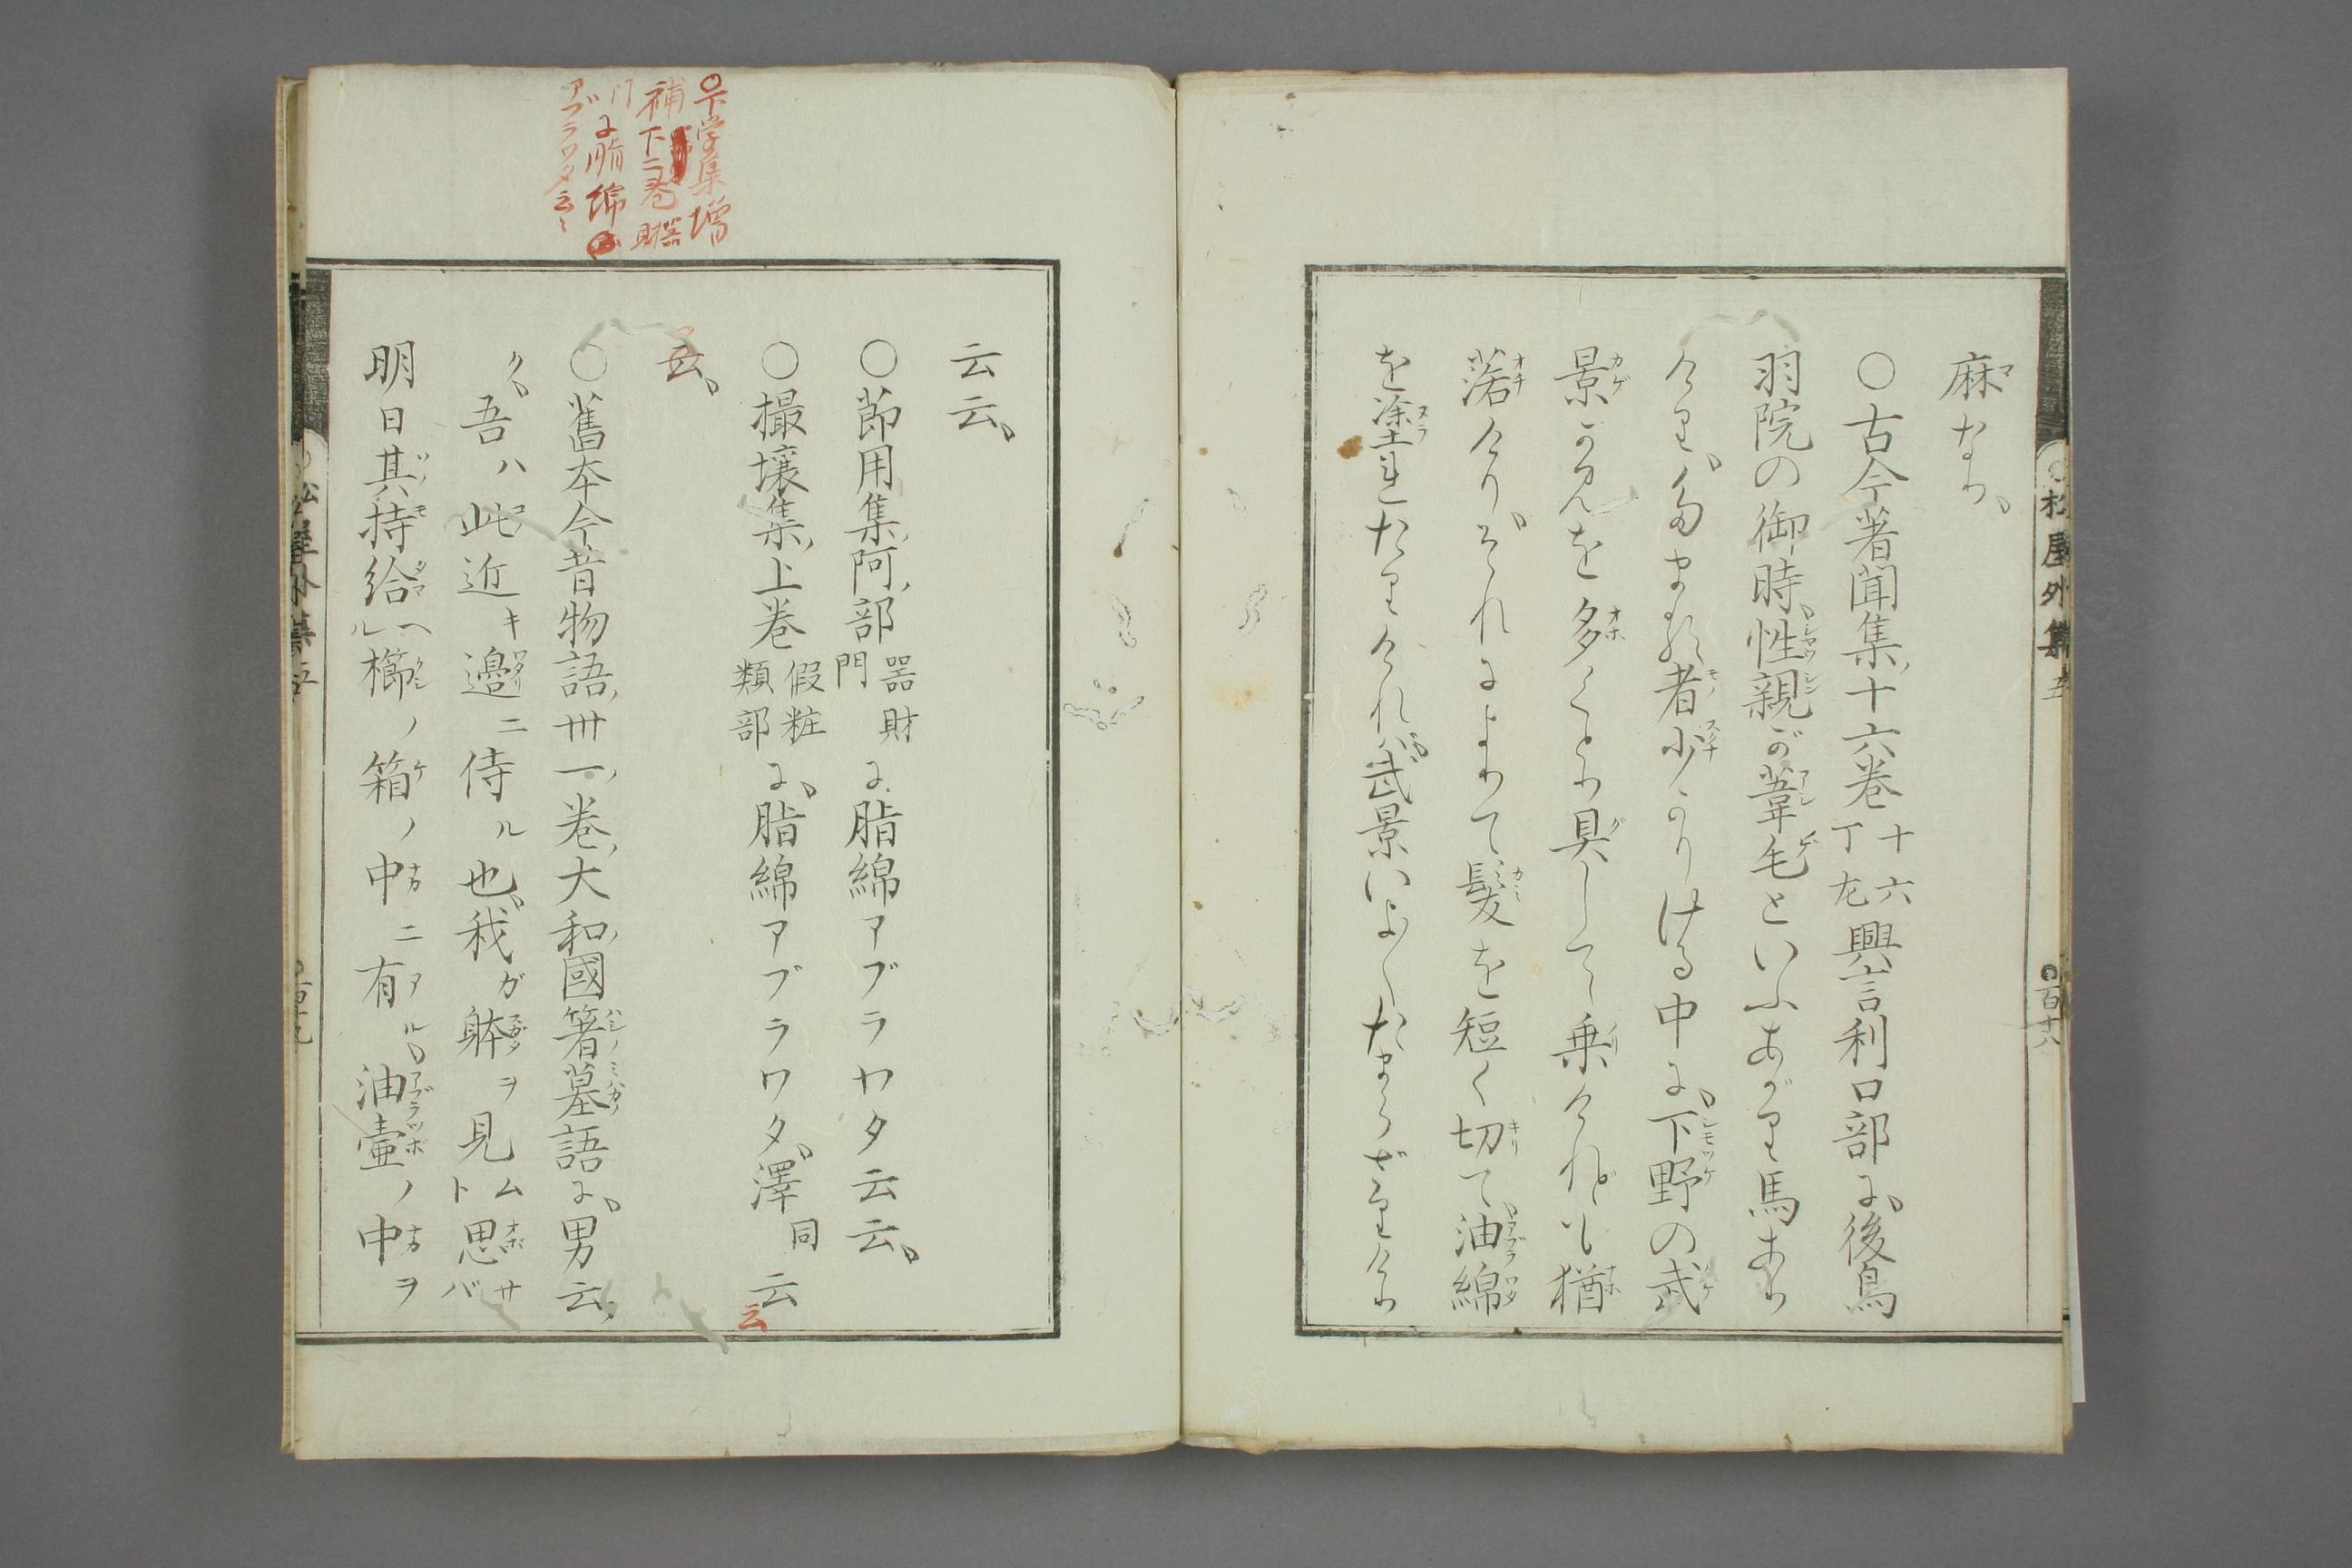 麻なり、
○古今著聞集、十六巻十六丁左興言利口部に、後鳥
羽院の御時、性親が葦毛といふあがり馬あり
けり、たまる者少かりける中に、下野の武
景かみを多くとり具して乗けれども猶
落けり、それによりて髪を短く切て、油綿
を塗れたりければ、武景いよ〱たまらざりけり
松屋外集 五
百十八
云云、
○節用集、阿、部器財門に脂綿アブラワタ云云、
○撮壌集、上巻假粧類部に、脂綿アブラワタ、澤同云云
云、
○舊本今昔物語、卅一、巻、大和、國箸墓語に、男云、
ク、吾ハ此近キ邊ニ侍ル也、我ガ躰ヲ見ムト思サバ
明日其持給ヘル櫛ノ箱ノ中ニ有ル、油壷ノ中ヲ
○下学集増
補下二巻器財
門に脂綿
アブラワタ云〻